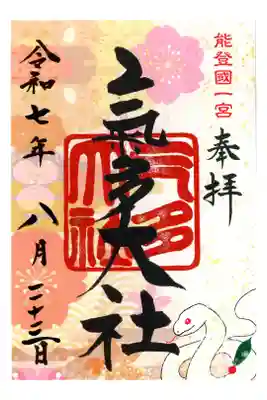 能登國一宮
奉拝
氣多大社
氣多大社
令和七年八月二十三日